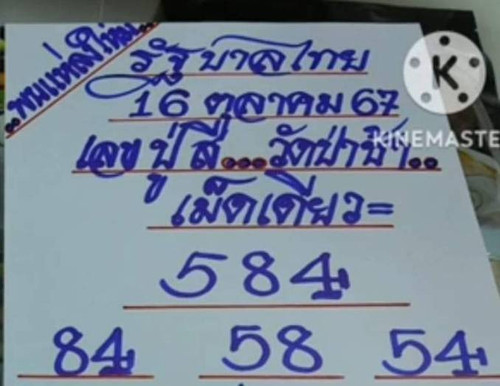 ..พบแหล่งใหม่..
รัฐบาลไทย
16 ตุลาคม 67
K
KINEMASTE
เลขปู่สี...วัดป่าช้า..
เม็ดเดียว=
584
84 58 54